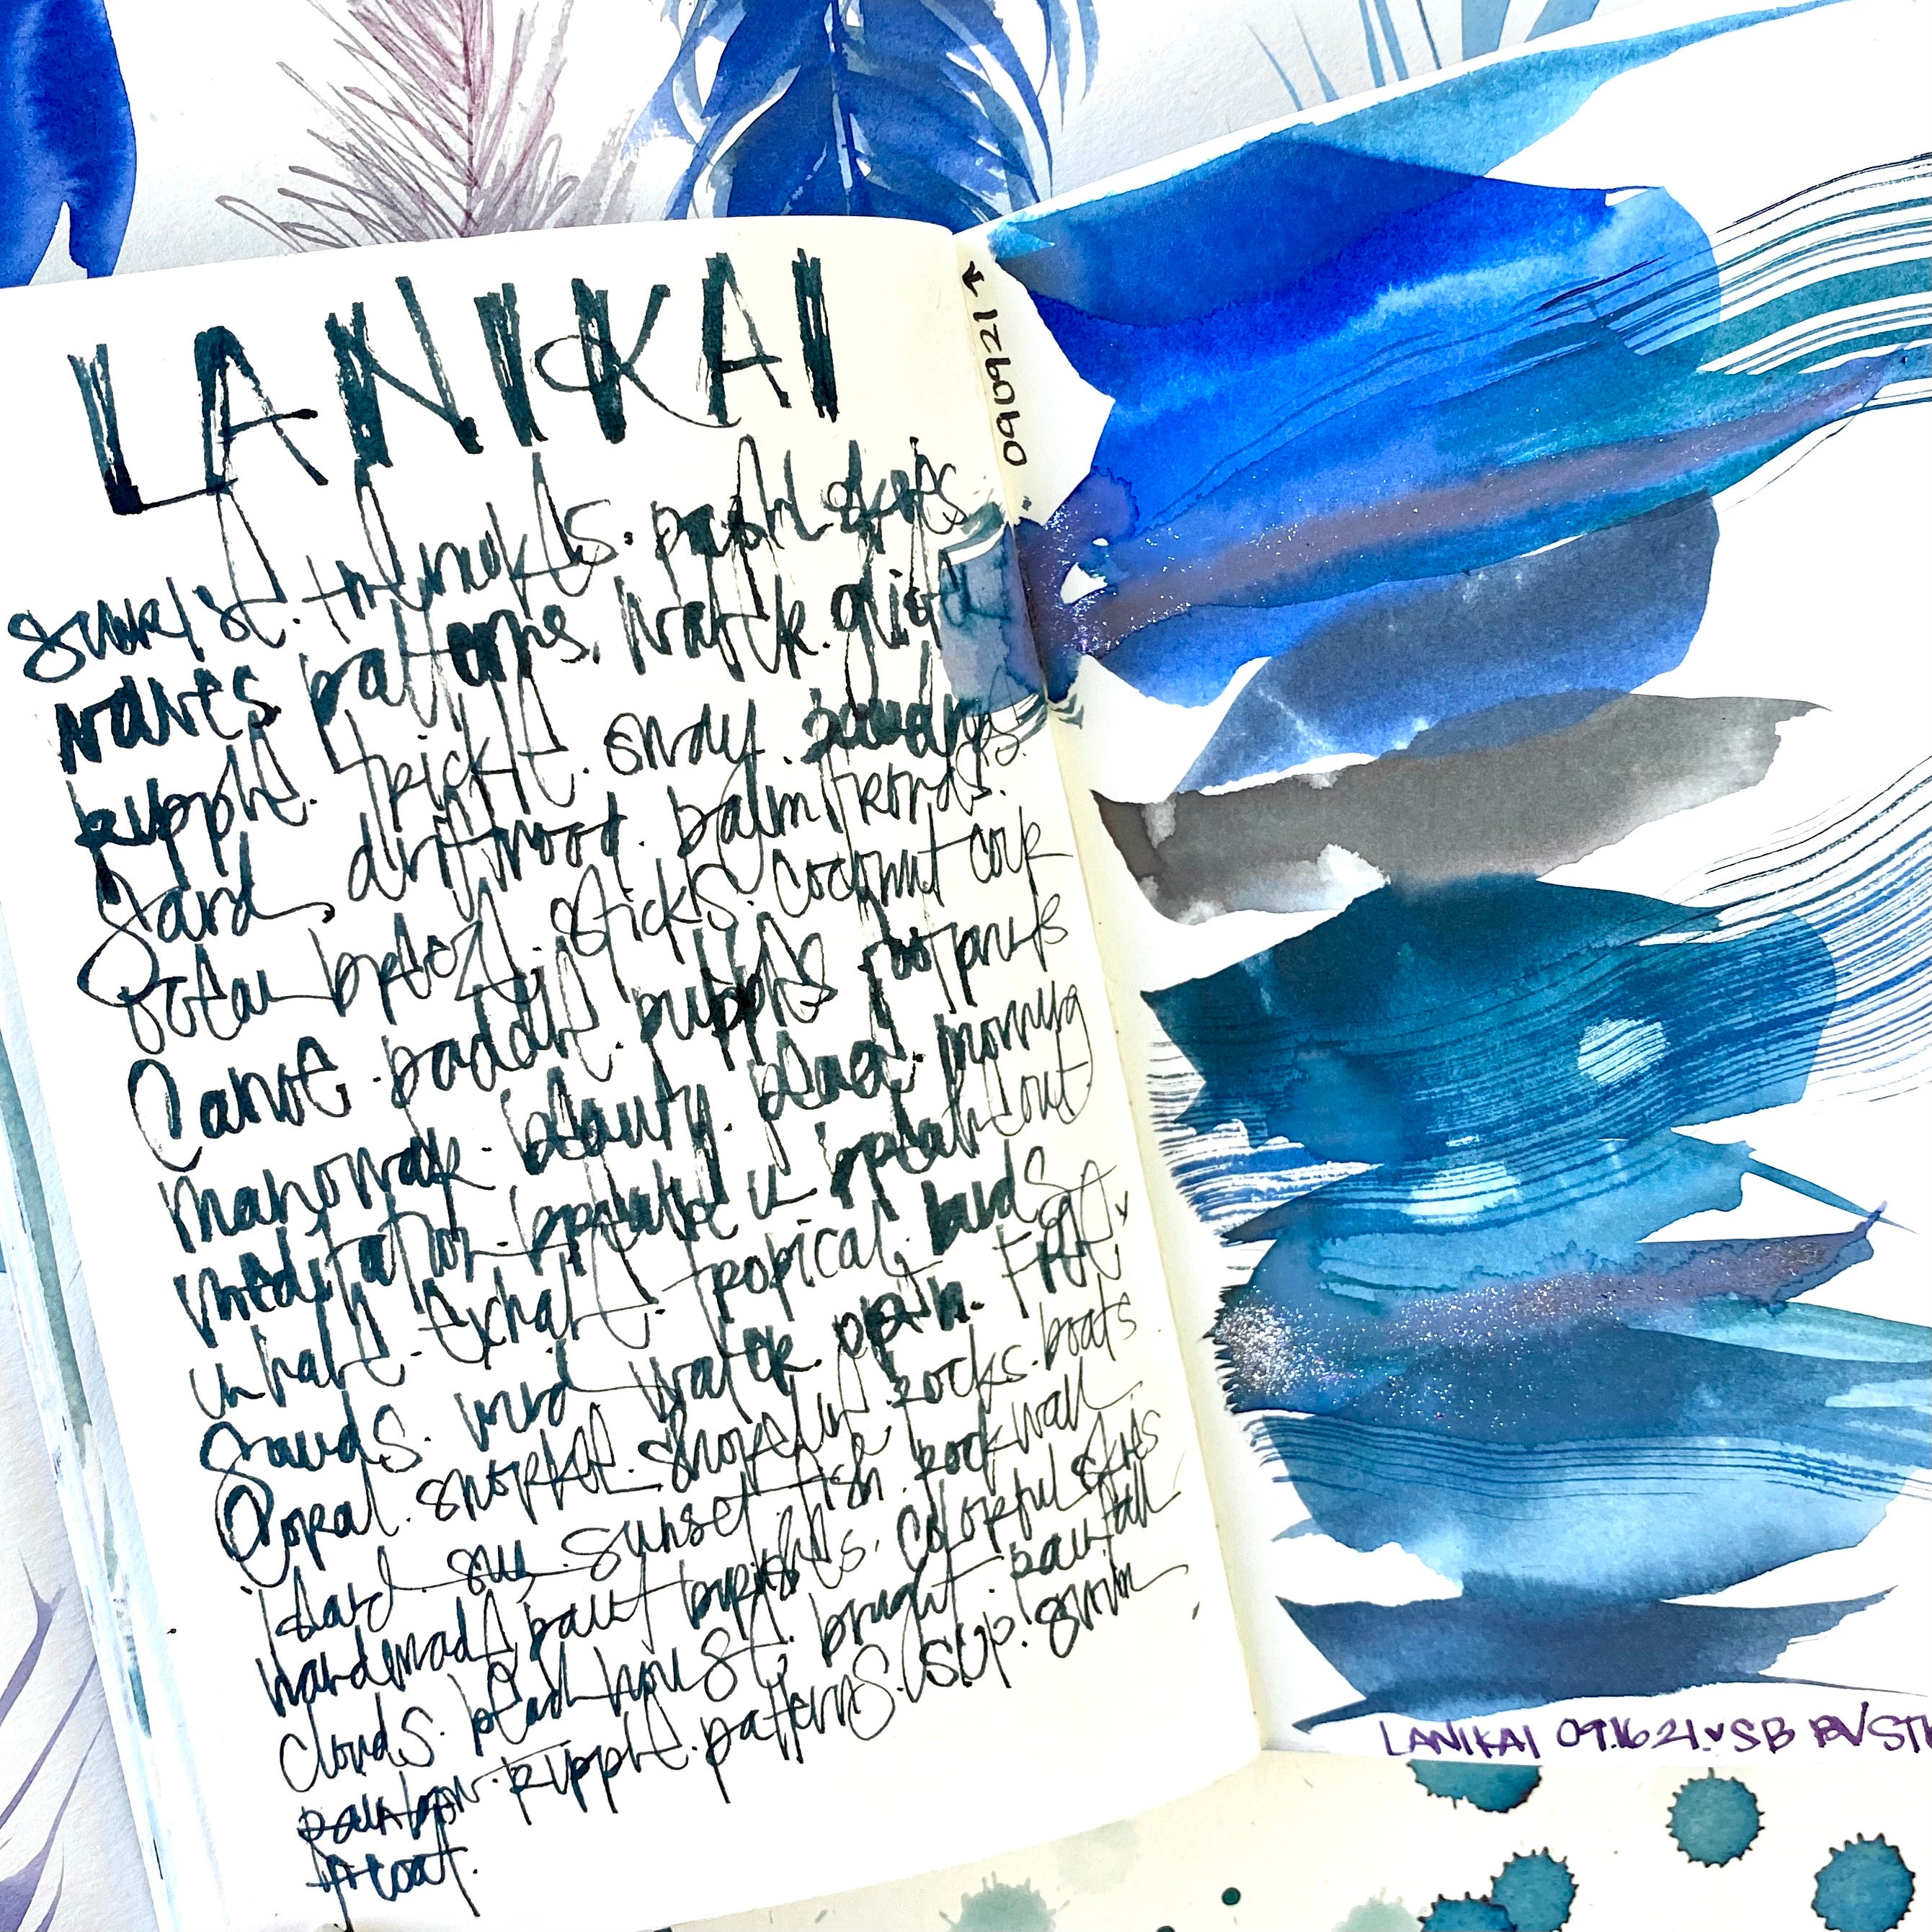 LANIKAI
sunrise. pastel skies
waves. patterns. water.
ripple. trickle. sway.
sand. driftwood. palm fronds.
ocean breeze. sticks. coconut
canoe. paddle. ripples footprints
beauty. morning
meditation. breathe in breathe out
inhale. exhale. tropical. birds
sounds. wind water. open. free.
coral. snorkel. shoreline. rocks. boats
island. sun. sunset. fish. rock wall
handmade paint brushes. colorful skies
clouds. beach house. bright. rainfall
rainbow. ripple. patterns. sup. swim
float.
091621
LANIKAI 09.16.21. ♥ SB